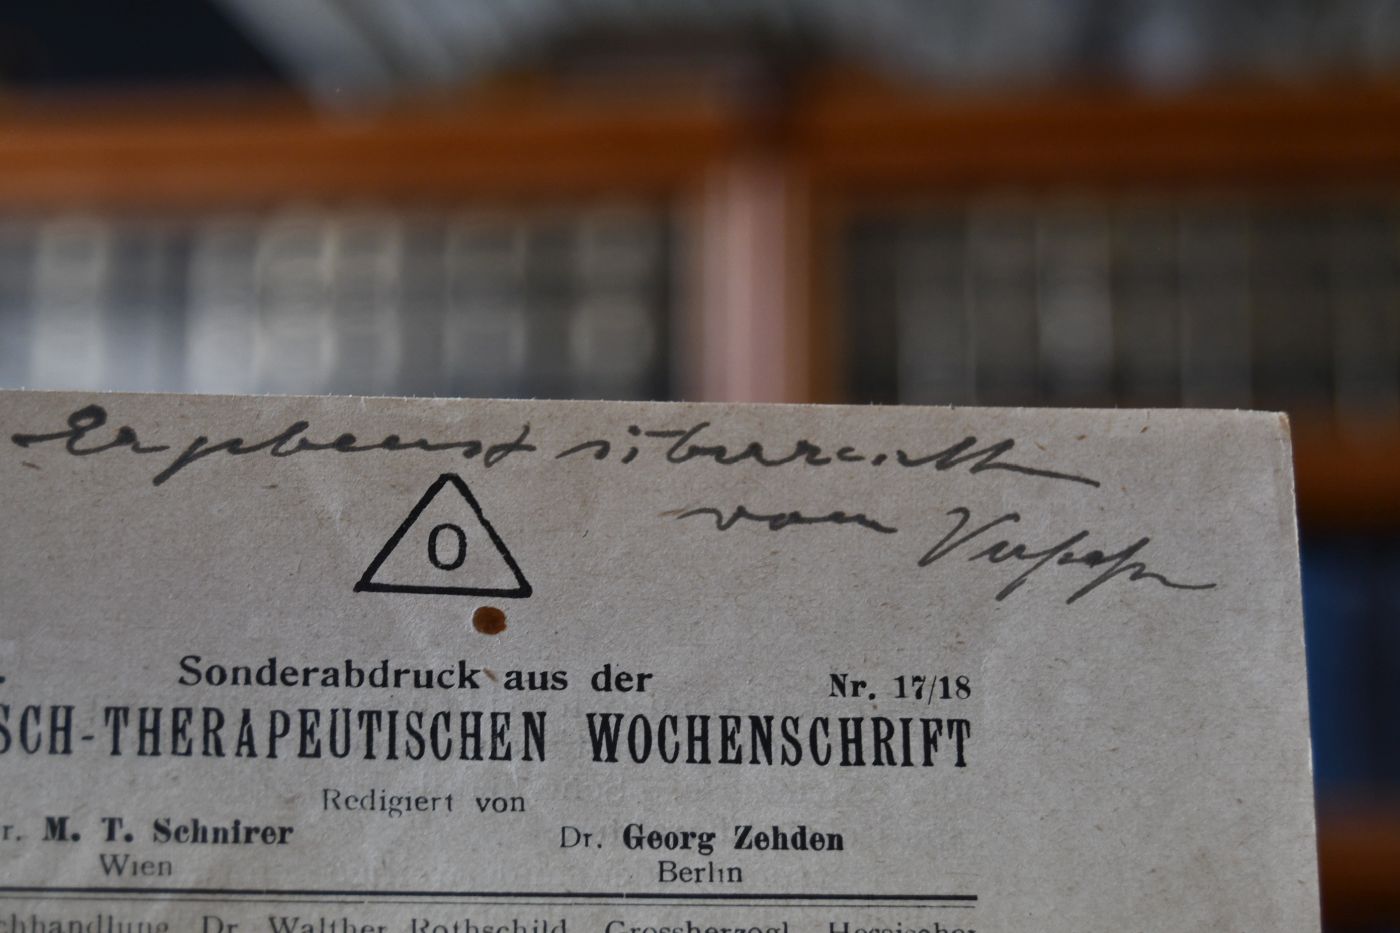 Ergebenst überreicht
vom Verf.
O
Sonderabdruck aus der
Nr. 17/18
SCH-THERAPEUTISCHEN WOCHENSCHRIFT
Redigiert von
r. M. T. Schnirer
Dr. Georg Zehden
Wien
Berlin
chhandlung Dr. Walther Rothschild, Grossherzogl. Hessischer